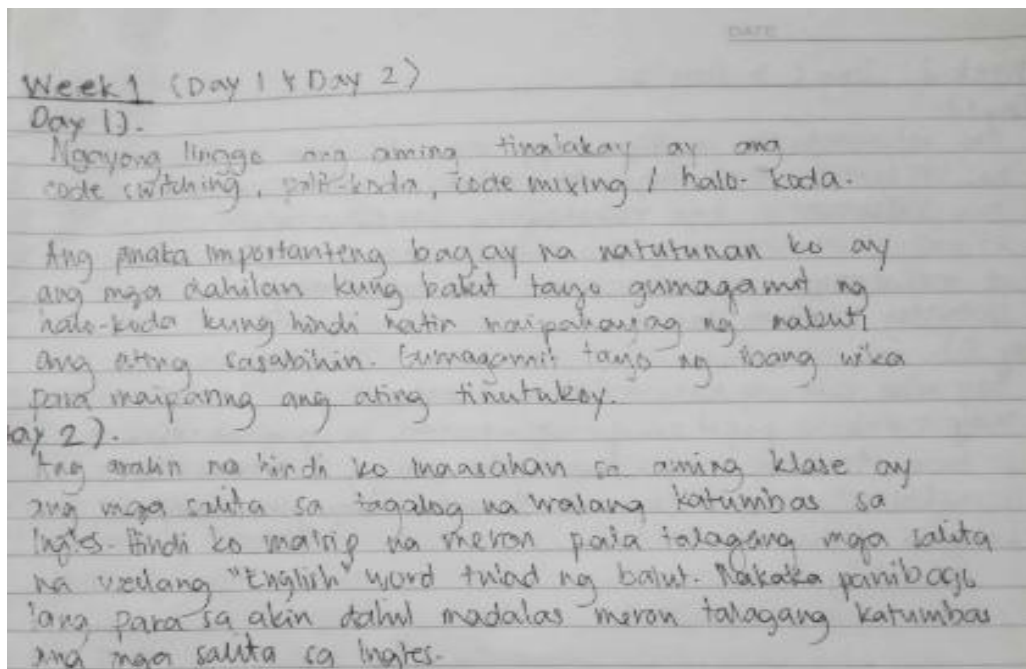 DATE
Week 1 (Day 1 & Day 2)
Day 1).
Ngayong linggo ang aming tinalakay ay ang
code switching, palit-koda, code mixing / halo-koda.
Ang pinaka importanteng bagay na natutunan ko ay
ang mga dahilan kung bakit tayo gumagamit ng
halo-koda kung hindi natin maipahayag ng mabuti
ang ating sasabihin. Gumagamit tayo ng ibang wika
para ang ating tinutukoy.
ay 2).
Ang aralin na hindi ko inaasahan sa aming klase ay
ang mga salita sa tagalog na walang katumbas sa
Ingles. Hindi ko maisip na meron pala talagang mga salita
na walang "English" word tulad ng balut. Nakaka panibago
lang para sa akin dahil madalas meron talagang katumbas
ang mga salita sa Ingles.